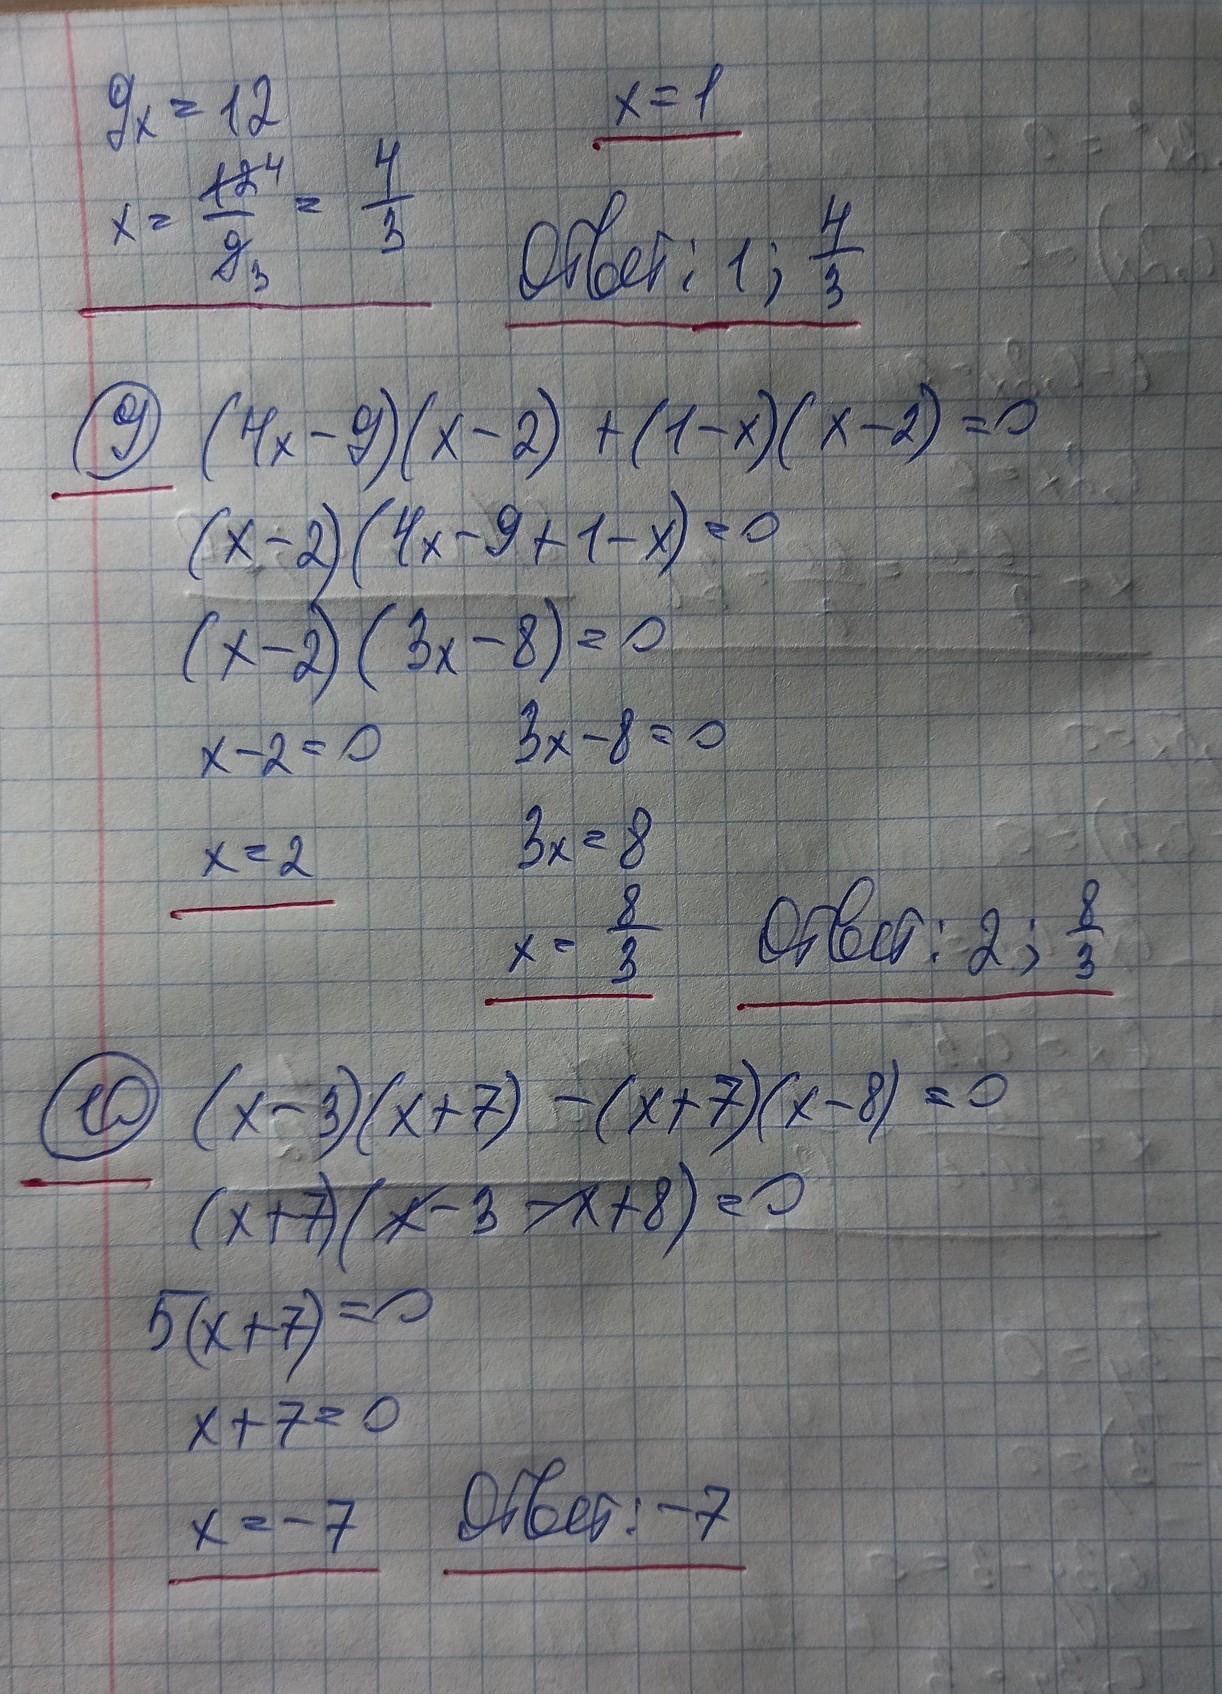 9x = 12
x = 12⁴/9₃ = 4/3
x = 1
Ответ: 1; 4/3
9 (4x-9)(x-2) + (1-x)(x-2) = 0
(x-2)(4x-9+1-x) = 0
(x-2)(3x-8) = 0
x-2=0 3x-8=0
x=2 3x=8
x = 8/3 Ответ: 2; 8/3
10 (x-3)(x+7) - (x+7)(x-8) = 0
(x+7)(x-3-x+8) = 0
5(x+7) = 0
x+7=0
x=-7 Ответ: -7